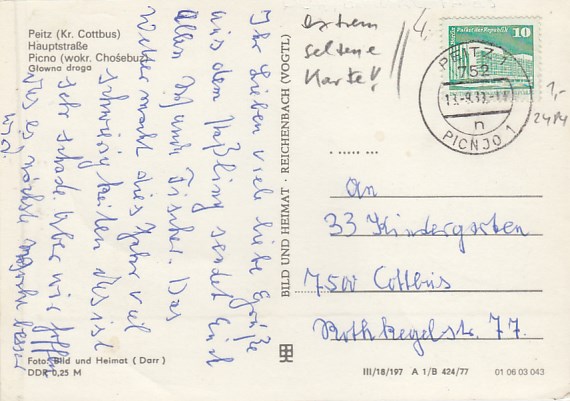 Peitz (Kr. Cottbus)
Hauptstraße
Picno (wokr. Chośebuz)
Głowna droga
Ihr Lieben viele liebe Grüße
aus dem sendet Euch
allen Das
Wetter macht dies Jahr viel
Schwierigkeiten. Das ist
sehr schade. Aber wir hoffen
das es nächste besser
wird.
Foto: Bild und Heimat (Darr)
DDR 0,25 M
BILD UND HEIMAT · REICHENBACH (VOGTL)
extrem
seltene
Karte!
4.
Palast der Republik
DDR
10
PEITZ 1
752
n
PICNJO 1
1,-
24 Pf
An
33 Kindergarten
7500 Cottbus
Rothkegelstr. 77.
III/18/197 A 1/B 424/77
01 06 03 043